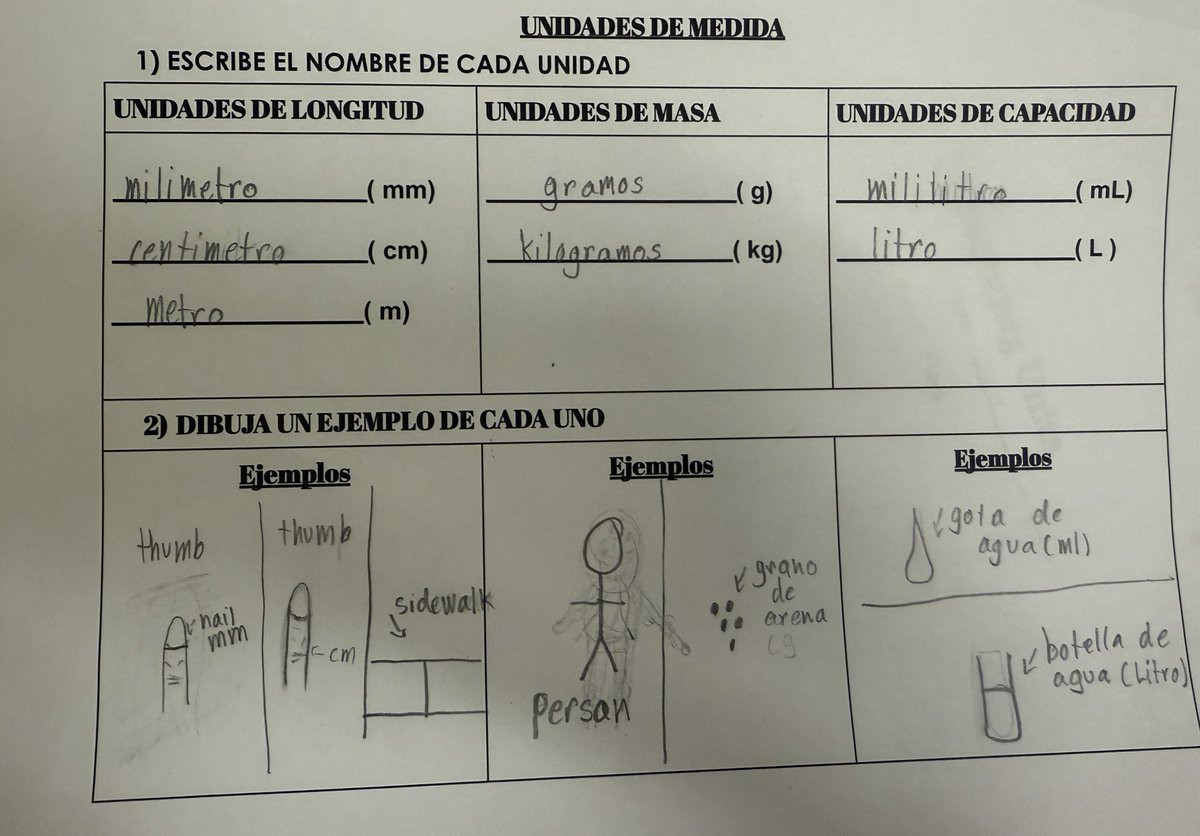 UNIDADES DE MEDIDA
1) ESCRIBE EL NOMBRE DE CADA UNIDAD
UNIDADES DE LONGITUD
milimetro (mm)
centimetro (cm)
metro (m)
UNIDADES DE MASA
gramos (g)
kilogramos (kg)
UNIDADES DE CAPACIDAD
mililitro (mL)
litro (L)
2) DIBUJA UN EJEMPLO DE CADA UNO
Ejemplos
thumb
nail
mm
thumb
cm
sidewalk
Ejemplos
persan
grano
de
arena
Ejemplos
gota de
agua (ml)
botella de
agua (Litro)